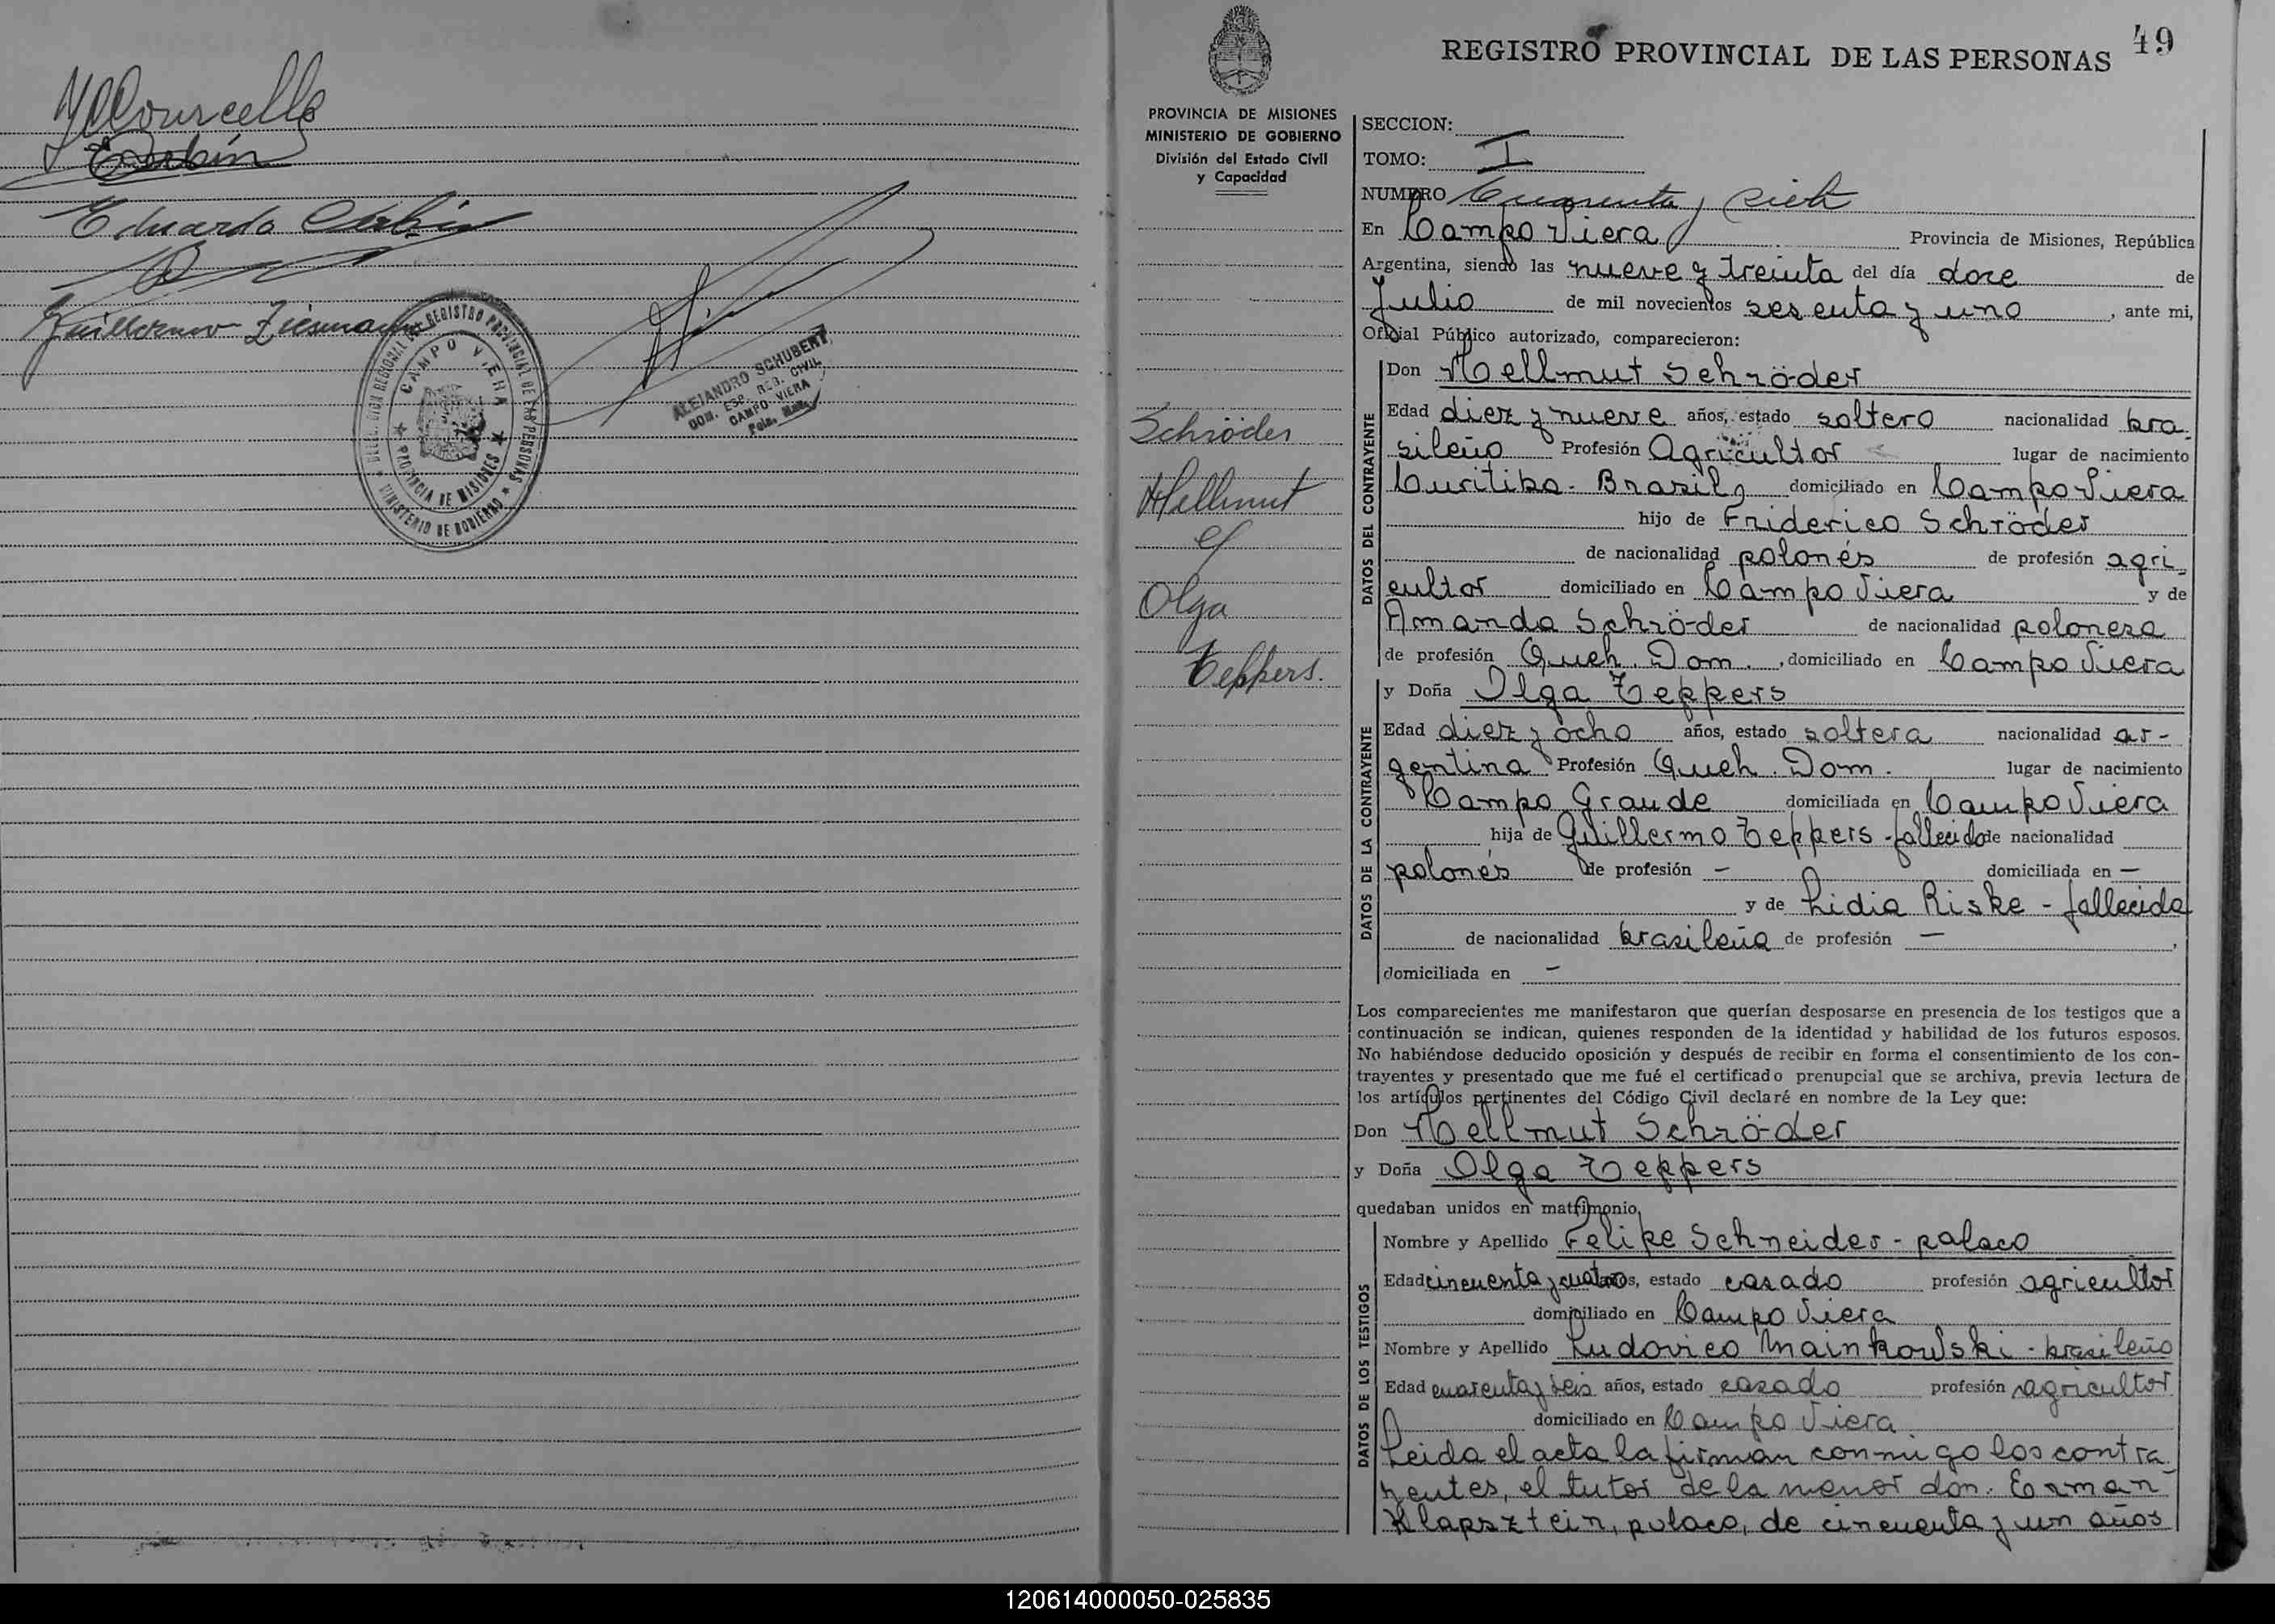 Eduardo
Guillermo Ziesmann
DELEGACION REGIONAL DEL REGISTRO PROVINCIAL DE LAS PERSONAS
CAMPO VIERA
PROVINCIA DE MISIONES
MINISTERIO DE GOBIERNO
ALEJANDRO SCHUBERT
REG. CIVIL
CAMPO VIERA
49
REGISTRO PROVINCIAL DE LAS PERSONAS
PROVINCIA DE MISIONES
MINISTERIO DE GOBIERNO
División del Estado Civil
y Capacidad
Schröder
Hellmut
y
Olga
Teppers.
SECCION:
TOMO: I
NUMERO Cuarenta y siete
En Campo Viera Provincia de Misiones, República
Argentina, siendo las nueve y treinta del día doce de
Julio de mil novecientos sesenta y uno, ante mi,
Oficial Público autorizado, comparecieron:
DATOS DEL CONTRAYENTE
Don Hellmut Schröder
Edad diez y nueve años, estado soltero nacionalidad bra-
sileño Profesión Agricultor lugar de nacimiento
Curitiba - Brasil, domiciliado en Campo Viera
hijo de Friderico Schröder
de nacionalidad polonés de profesión agri-
cultor domiciliado en Campo Viera y de
Amanda Schröder de nacionalidad polonesa
de profesión Queh. Dom., domiciliado en Campo Viera
DATOS DE LA CONTRAYENTE
y Doña Olga Teppers
Edad diez y ocho años, estado soltera nacionalidad ar-
gentina Profesión Queh. Dom. lugar de nacimiento
Campo Grande domiciliada en Campo Viera
hija de Guillermo Teppers - fallecido de nacionalidad
polonés de profesión — domiciliada en —
y de Lidia Riske - fallecida
de nacionalidad brasileña de profesión —,
domiciliada en —
Los comparecientes me manifestaron que querían desposarse en presencia de los testigos que a
continuación se indican, quienes responden de la identidad y habilidad de los futuros esposos.
No habiéndose deducido oposición y después de recibir en forma el consentimiento de los con-
trayentes y presentado que me fué el certificado prenupcial que se archiva, previa lectura de
los artículos pertinentes del Código Civil declaré en nombre de la Ley que:
Don Hellmut Schröder
y Doña Olga Teppers
quedaban unidos en matrimonio.
DATOS DE LOS TESTIGOS
Nombre y Apellido Felipe Schneider - polaco
Edad cincuenta y cuatro años, estado casado profesión agricultor
domiciliado en Campo Viera
Nombre y Apellido Ludovico Mainkowski - brasileño
Edad cuarenta y seis años, estado casado profesión agricultor
domiciliado en Campo Viera
Leida el acta la firman conmigo los contra-
yentes, el tutor de la menor don. Erman
Klapsztein, polaco, de cincuenta y un años
120614000050-025835